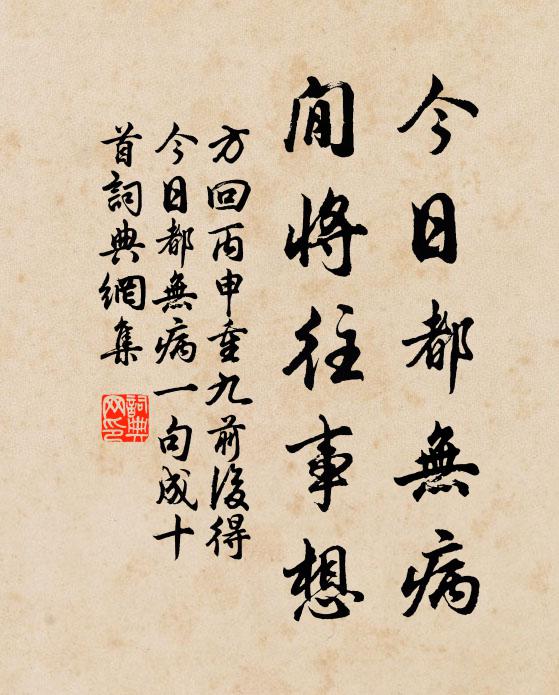 今日都無病
閒將往事想
方回丙申重九前後得
今日都無病一句成十
首詞典網集
詞典
网印